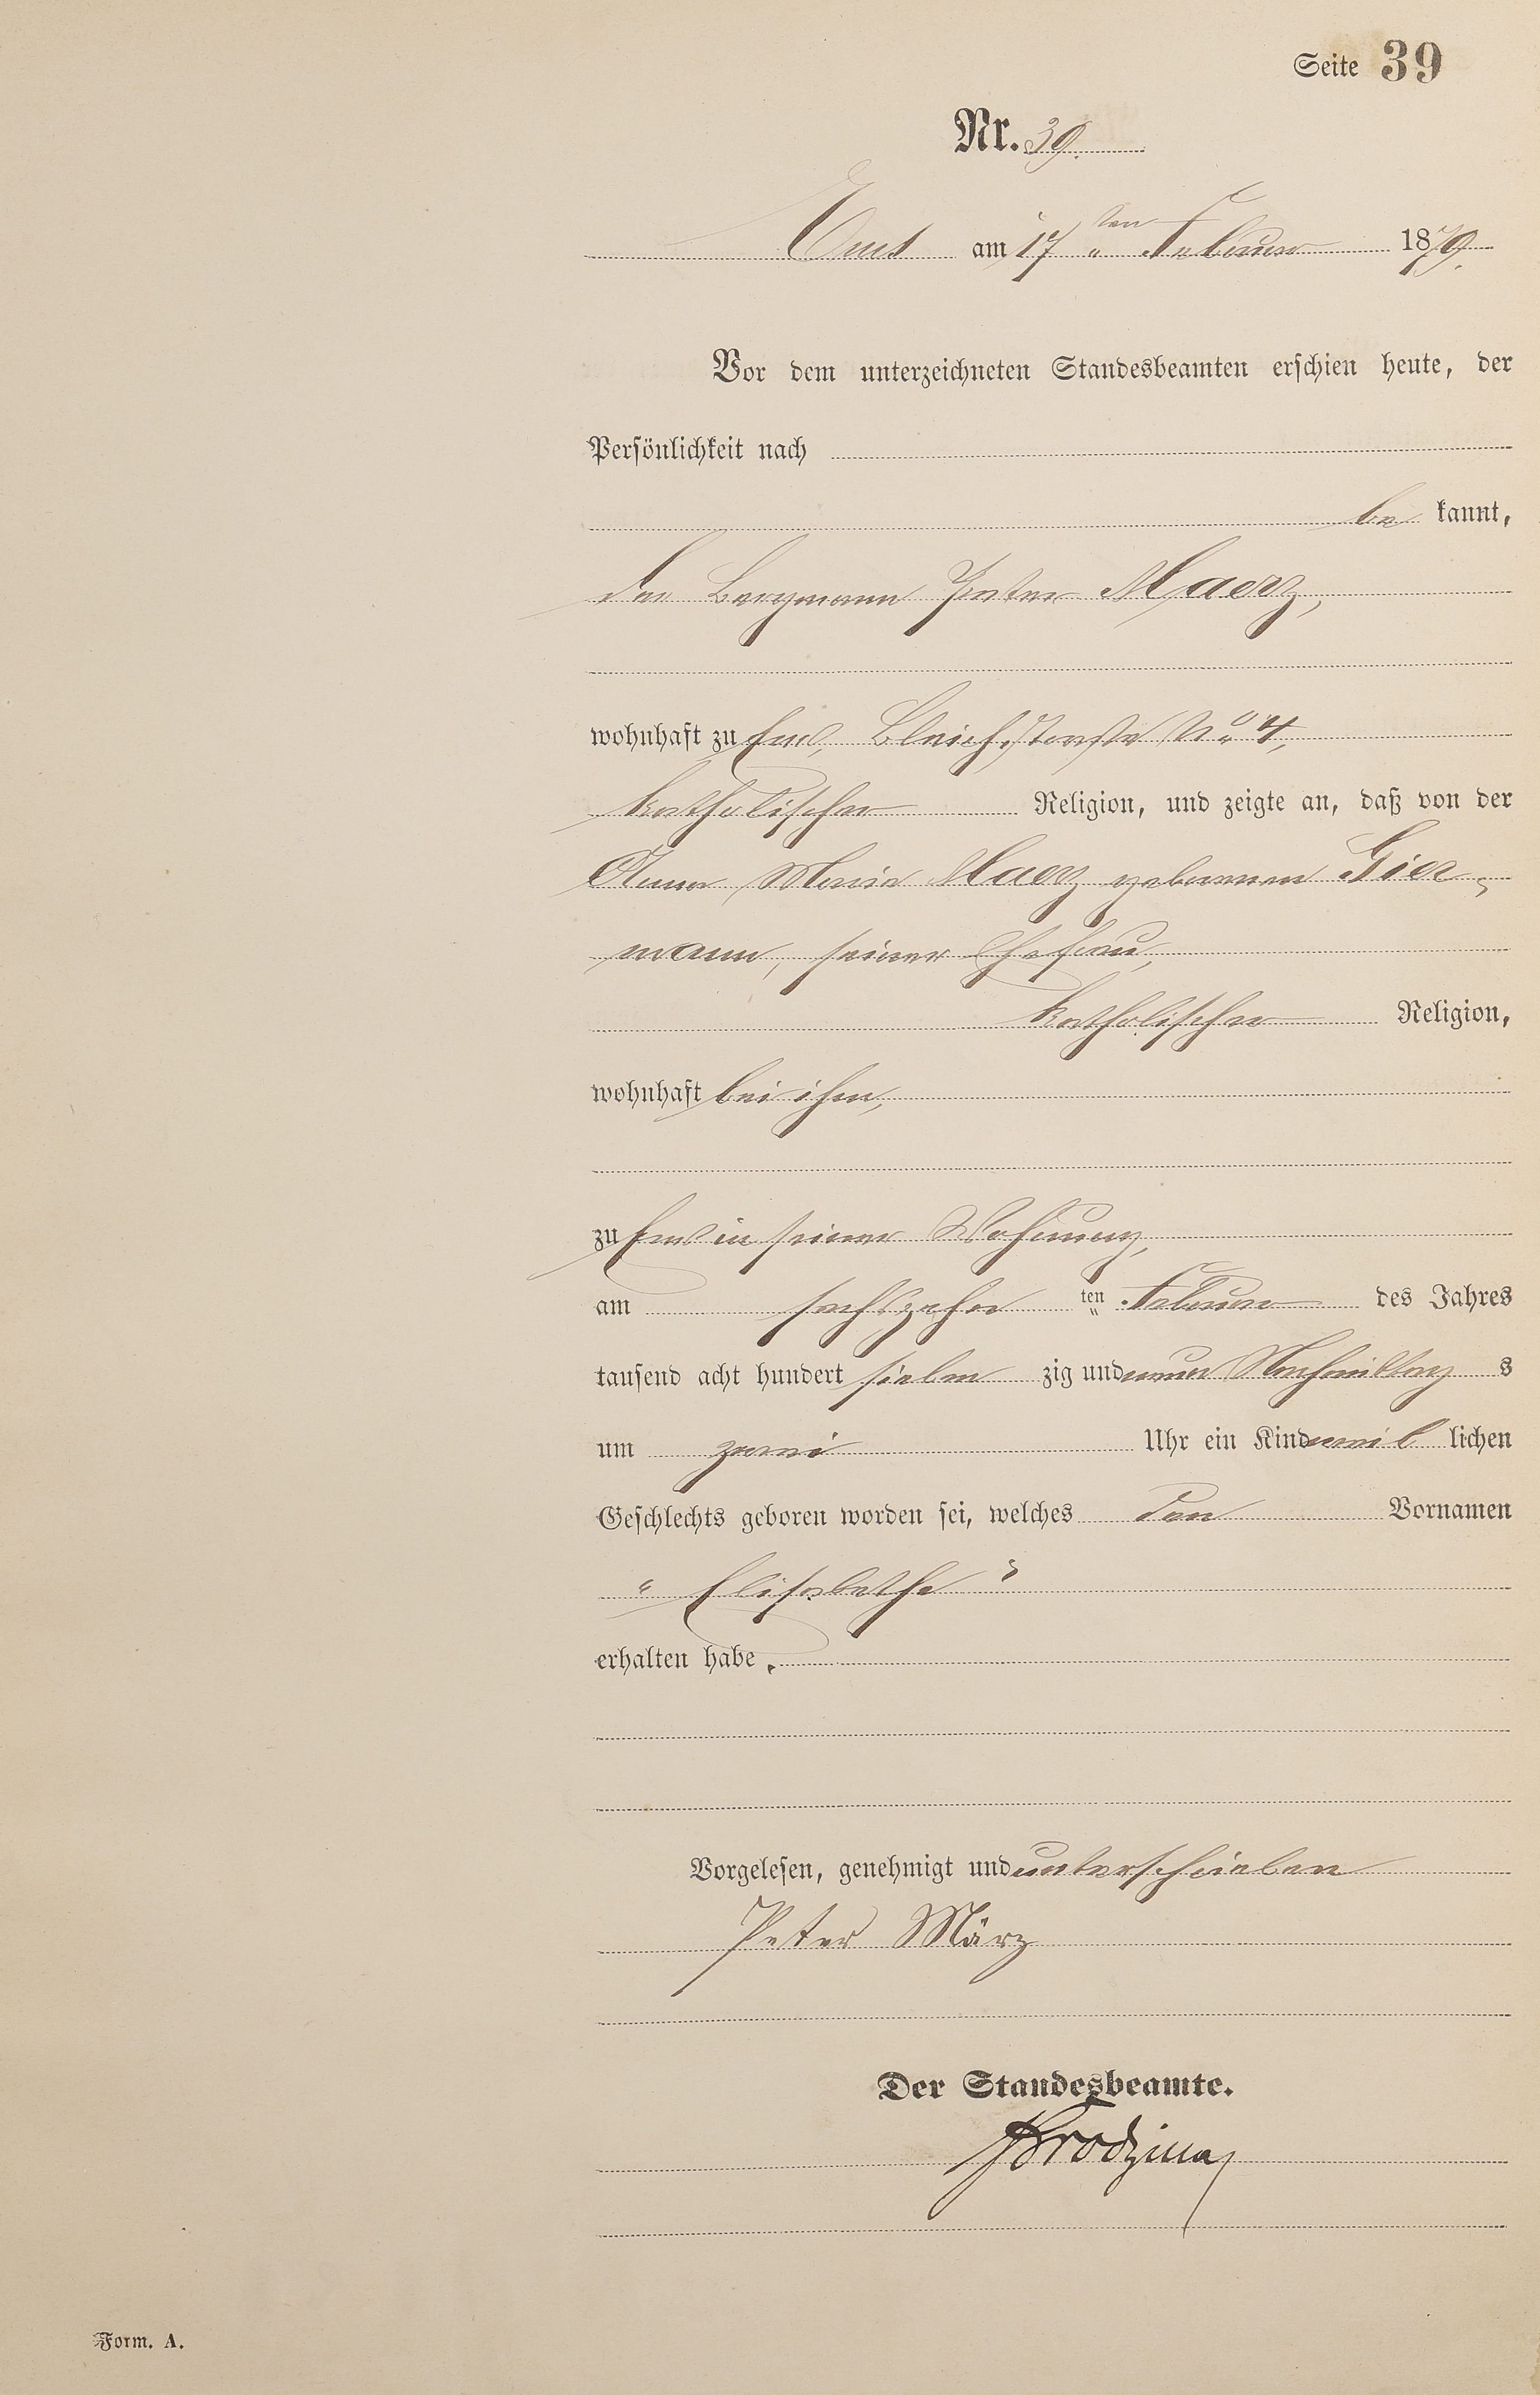 Seite 39
Nr. 39.
Ems am 17 ten Februar 1879.
Vor dem unterzeichneten Standesbeamten erschien heute, der
Persönlichkeit nach
be kannt,
der Bergmann Peter Maerz,
wohnhaft zu Ems, Bleichstraße No 4,
katholischer Religion, und zeigte an, daß von der
Anna Maria Maerz geborenen Gier-
mann, seiner Ehefrau,
katholischer Religion,
wohnhaft bei ihm,
zu Ems in seiner Wohnung,
am sechszehn ten Februar des Jahres
tausend acht hundert sieben zig und neun Nachmittag s
um zwei Uhr ein Kind weib lichen
Geschlechts geboren worden sei, welches den Vornamen
" Elisabetha "
erhalten habe.
Vorgelesen, genehmigt und unterschrieben
Peter März
Der Standesbeamte.
Form. A.